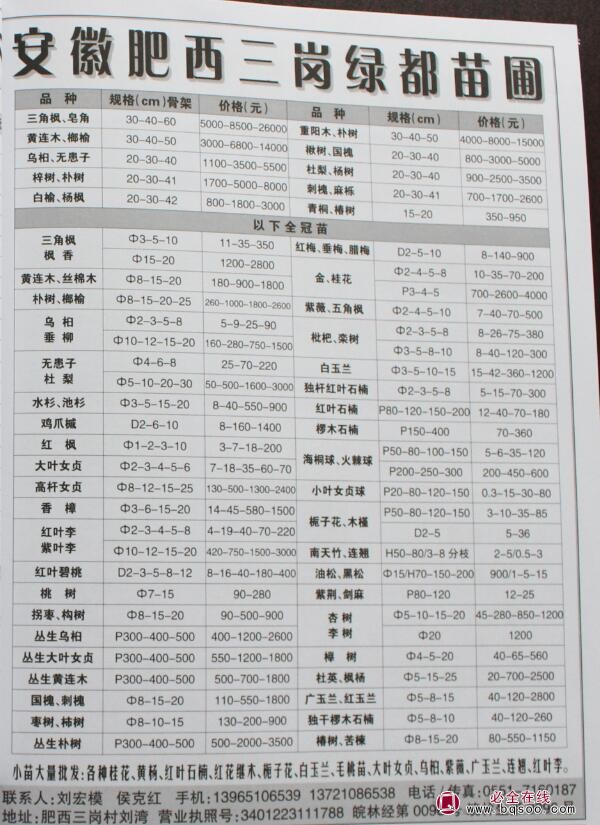 安徽肥西三岗绿都苗圃
品 种 规格(cm)骨架 价格(元) 品 种 规格(cm) 价格(元)
三角枫、皂角 30-40-60 5000-8500-26000 重阳木、朴树 30-40-50 4000-8000-15000
黄连木、榔榆 30-40-50 3000-6800-14000 楸树、国槐 20-30-40 800-3000-5000
乌桕、无患子 20-30-40 1100-3500-5500 杜梨、杨树 20-30-40 900-2500-3500
梓树、朴树 20-30-41 1700-5000-8000 刺槐、麻栎 20-30-41 700-1700-2600
白榆、杨枫 20-30-42 800-1800-3000 青桐、椿树 15-20 350-950
以下全冠苗
三角枫 Φ3-5-10 11-35-350 红梅、垂梅、腊梅 D2-5-10 8-140-900
枫 香 Φ15-20 1200-2800 金、桂花 Φ2-4-5-8 10-35-70-200
黄连木、丝棉木 Φ8-15-20 180-900-1800 P3-4-5 700-2600-4000
朴树、榔榆 Φ8-15-20-25 260-1000-1800-2600 紫薇、五角枫 Φ2-4-5-10 7-40-70-500
乌 桕 Φ2-3-5-8 5-9-25-90 枇杷、栾树 Φ2-3-5-8 8-26-75-380
垂 柳 Φ10-12-15-20 160-280-750-1500 Φ3-5-8-10 8-40-120-300
无患子 Φ4-6-8 25-70-220 白玉兰 Φ3-5-10-15 15-42-360-1200
杜 梨 Φ5-10-20-30 50-500-1600-3000 独杆红叶石楠 Φ2-3-5-8 5-15-70-300
水杉、池杉 Φ3-5-15-20 8-40-550-900 红叶石楠 P80-120-150-200 12-40-70-180
鸡爪槭 D2-6-10 8-160-1400 椤木石楠 P150-400 70-360
红 枫 Φ1-2-3-10 3-7-18-200 海桐球、火棘球 P50-80-100-150 5-6-35-120
大叶女贞 Φ2-3-4-5-6 7-18-35-60-70 P200-250-300 200-450-600
高杆女贞 Φ8-12-15-25 130-500-1300-2400 小叶女贞球 P20-80-120-150 0.3-15-30-80
香 樟 Φ3-6-15-20 14-45-580-1500 栀子花、木槿 P50-80-120-150 3-10-35-85
红叶李 Φ2-3-4-5-8 4-19-40-70-220 D2-5 5-36
紫叶李 Φ10-12-15-20 420-750-1500-3000 南天竹、连翘 H50-80/3-8 分枝 2-5/0.5-3
红叶碧桃 D2-3-5-8-12 8-16-40-180-400 油松、黑松 Φ15/H70-150-200 900/1-5-15
桃 树 Φ7-15 90-280 紫荆、剑麻 P80-120 12-25
拐枣、构树 Φ8-15-20 90-500-900 杏 树 Φ5-10-15-20 45-280-850-1200
丛生乌桕 P300-400-500 400-1200-2600 李 树 Φ20 1200
丛生大叶女贞 P300-400-500 550-1200-1800 樟 树 Φ4-5-20 40-65-560
丛生黄连木 P300-400-500 500-700-1800 杜英、枫杨 Φ5-15-25 20-700-2500
国槐、刺槐 Φ8-15-20 110-550-1800 广玉兰、红玉兰 Φ5-8-15 40-120-2800
枣树、柿树 Φ8-10-15 130-200-900 独干椤木石楠 Φ5-8-10 40-120-260
丛生朴树 P300-400-500 500-2000-3500 椿树、苦楝 Φ8-15-20 80-550-1150
小苗大量批发:各种桂花、黄杨、红叶石楠、红花继木、栀子花、白玉兰、毛桃苗、大叶女贞、乌桕、紫薇、广玉兰、连翘、红叶李。
联系人:刘宏模 侯克红 手机:13965106539 13721086538 电话/传真:0551-7150187
地址:肥西三岗村刘湾 营业执照号:3401223111788 皖林经第 009 号
必全在线
www.bqso.com